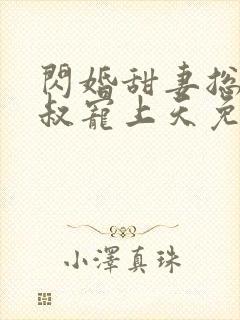 閃婚甜妻拋
叔寵上天免
小澤真珠